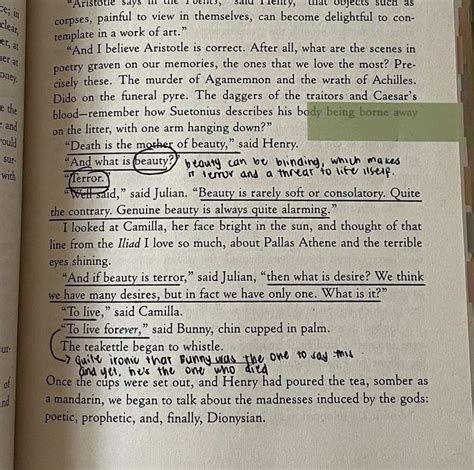 "Aristotle says in the Poetics," said Henry, "that objects such as
corpses, painful to view in themselves, can become delightful to con-
template in a work of art."
"And I believe Aristotle is correct. After all, what are the scenes in
poetry graven on our memories, the ones that we love the most? Pre-
cisely these. The murder of Agamemnon and the wrath of Achilles.
Dido on the funeral pyre. The daggers of the traitors and Caesar's
blood—remember how Suetonius describes his body being borne away
on the litter, with one arm hanging down?"
"Death is the mother of beauty," said Henry.
"And what is beauty?"
beauty can be blinding, which makes
it terror and a threat to life itself.
"Terror."
"Well said," said Julian. "Beauty is rarely soft or consolatory. Quite
the contrary. Genuine beauty is always quite alarming."
I looked at Camilla, her face bright in the sun, and thought of that
line from the Iliad I love so much, about Pallas Athene and the terrible
eyes shining.
"And if beauty is terror," said Julian, "then what is desire? We think
we have many desires, but in fact we have only one. What is it?"
"To live," said Camilla.
"To live forever," said Bunny, chin cupped in palm.
The teakettle began to whistle.
quite ironic that Bunny was the one to say this
and yet, he's the one who died
Once the cups were set out, and Henry had poured the tea, somber as
a mandarin, we began to talk about the madnesses induced by the gods:
poetic, prophetic, and, finally, Dionysian.